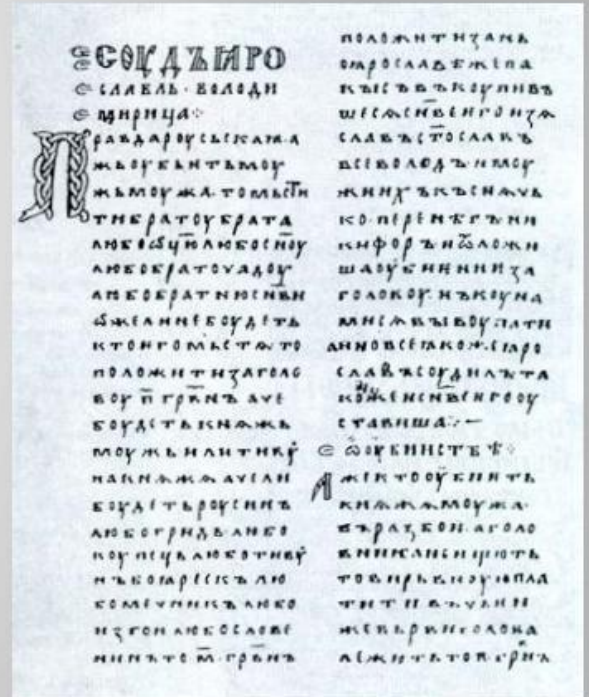 СОУДЪ ꙖРО
СЛАВЛЬ · ВОЛОДИ
МИРИЦА⁘
Правдароусьскаꙗ·а
жьоубьитьмоу
жьмоужа·томьсти
тибратоубрата
любоѡц҃юлюбосн҃оу
любобратоучадоу
любобратнюсн҃ви
ѡжелинебоудеть
ктоигомьстѧто
положитизаголо
воу п҃ грв҃нъ аче
боудетькнѧжь
моужьилитиву
накнѧжѧачели
боудетьроусинъ
любогридьлюбо
коупецьлюботиву
нъбоꙗрескълю
бомечникълюбо
изгоилюбослове
нинъто м҃ · грв҃нъ
положитизань
оꙗрославѣжепа
кысъвъкоупивъ
шесѧсн҃веиегоизѧ
славъст҃ославъ
всеволодъимоу
жиихъкъснѧчь
ко·перенѣгъни
кифоръиѿложи
шаоубиниииза
головоу·нъкоуна
мисѧвыкоупати
аиновсеꙗкожеꙗро
славъсоудилъта
кожеисн҃веиегооу
ставиша⁘
ѡоубииствѣ⁘
Ажектооубиить
кнѧжамоужа·
въразбои·аголо
вниканеищють
товирьвноуюпла
титивъчьии
жевьрвиголова
лежитьтоп҃·грв҃нъ